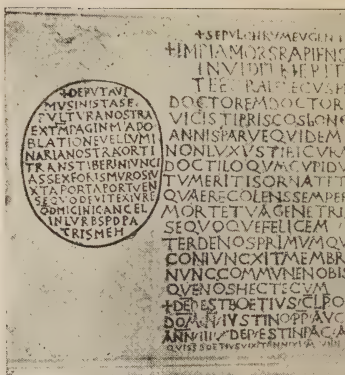 +DEPVTAVI
MVSINISTASE
PVLTVRANOSTRA
EXTMPAGINMADO
BLATIONEVELLVMI
NARIANOSTRAORTI
TRANSTIBERINIVNCI
ASSEXFORISMVROSIV
XTAPORTAPORTVEN
SEQVODEVITEXIVRE
INLVRBSPDPA
TRISMEH
+SEPVLCHRVMEVGENI
+IMPIAMORSRAPIENS
DOCTOREMDOCTOR
VICISTIPRISCOSLONG
ANNISPARVEQVIDEM
NONLVXVSTIBICVRA
DOCTILOQVMCVPIDV
TVMERITISORNATIT
QVAERECOLENSSEMPER
MORTETVAGENETRI
SEQVOQVEFELICEM
TERDENOSPRIMVMQV
CONIVNCXITMEMBR
NVNCCOMMVNENOBIS
QVENOSHECTECVM
+DEPESTBOETIVSCLPO